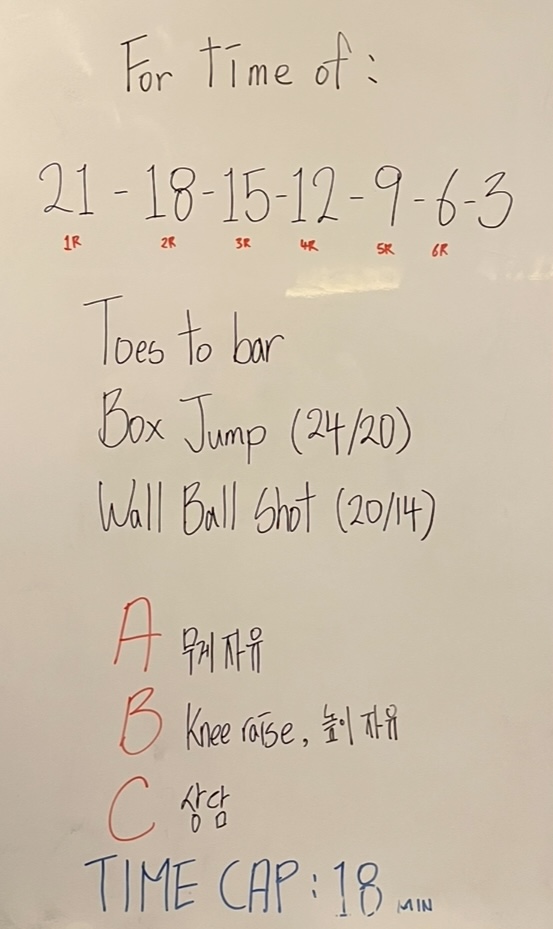 For time of:
21-18-15-12-9-6-3
1R 2R 3R 4R 5R 6R
Toes to bar
Box Jump (24/20)
Wall Ball Shot (20/14)
A 무게 자유
B Knee raise, 높이 자유
C 상담
TIME CAP: 18 MIN